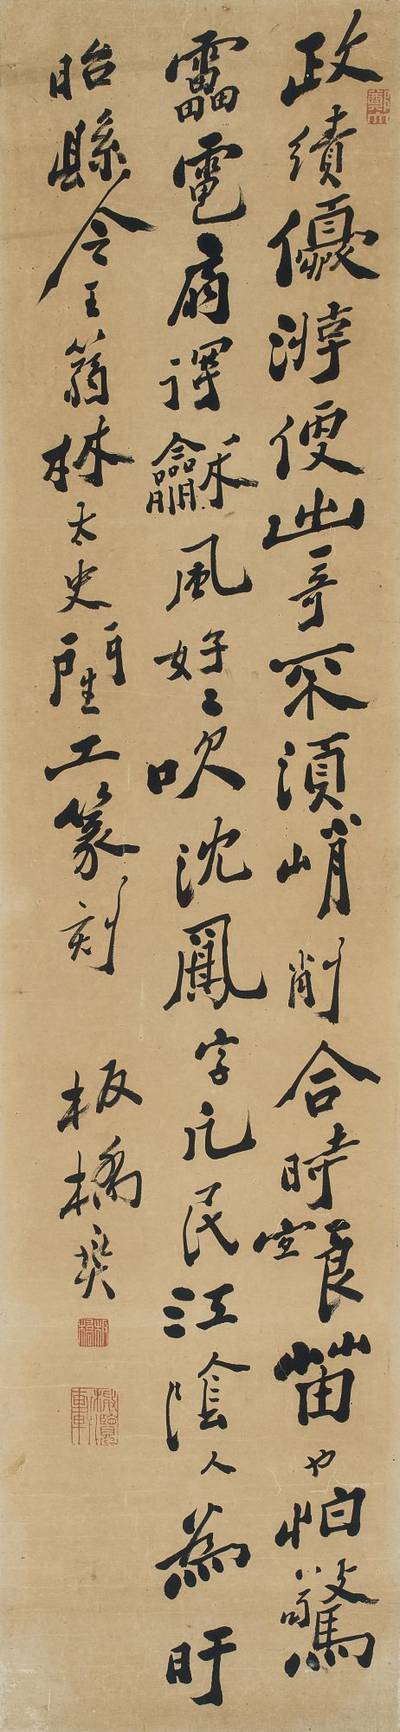 政績優游便出奇不須峭削合時宜良苗也怕驚
靁電扇得龢風好〻吹沈鳳字凡民江陰人為盱
眙縣令王篛林太史門生工篆刻
板橋燮